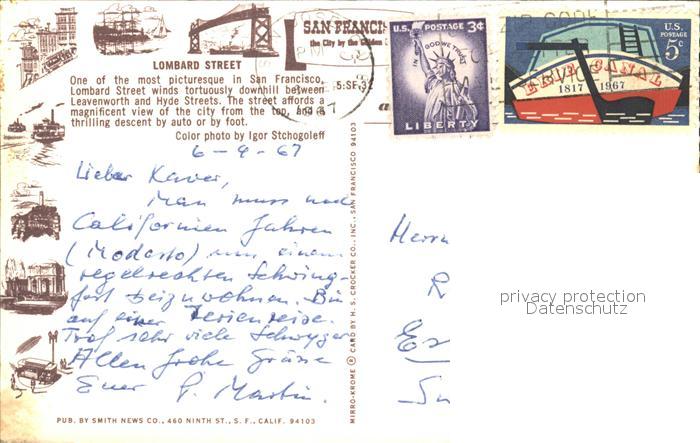 SAN FRANCIS
the City by the Golden
U.S. POSTAGE 3¢
IN GOD WE TRUST
LIBERTY
U.S. POSTAGE 5c
ERIE CANAL
1817 1967
LOMBARD STREET
One of the most picturesque in San Francisco,
Lombard Street winds tortuously downhill between
Leavenworth and Hyde Streets. The street affords a
magnificent view of the city from the top, and a
thrilling descent by auto or by foot.
Color photo by Igor Stchogoleff
6-9-67
Lieber Xaver,
Man muss nach
Californien fahren
(Modesto) um einem
regelrechten Schwing-
fest beizuwohnen. Bin
auf einer Ferienreise.
Traf sehr viele Schwyzer
Allen frohe Grüsse
Euer P. Martin.
PUB. BY SMITH NEWS CO., 460 NINTH ST., S. F., CALIF. 94103
MIRRO-KROME ® CARD BY H. S. CROCKER CO., INC., SAN FRANCISCO 94103
Herrn
R
privacy protection
Datenschutz